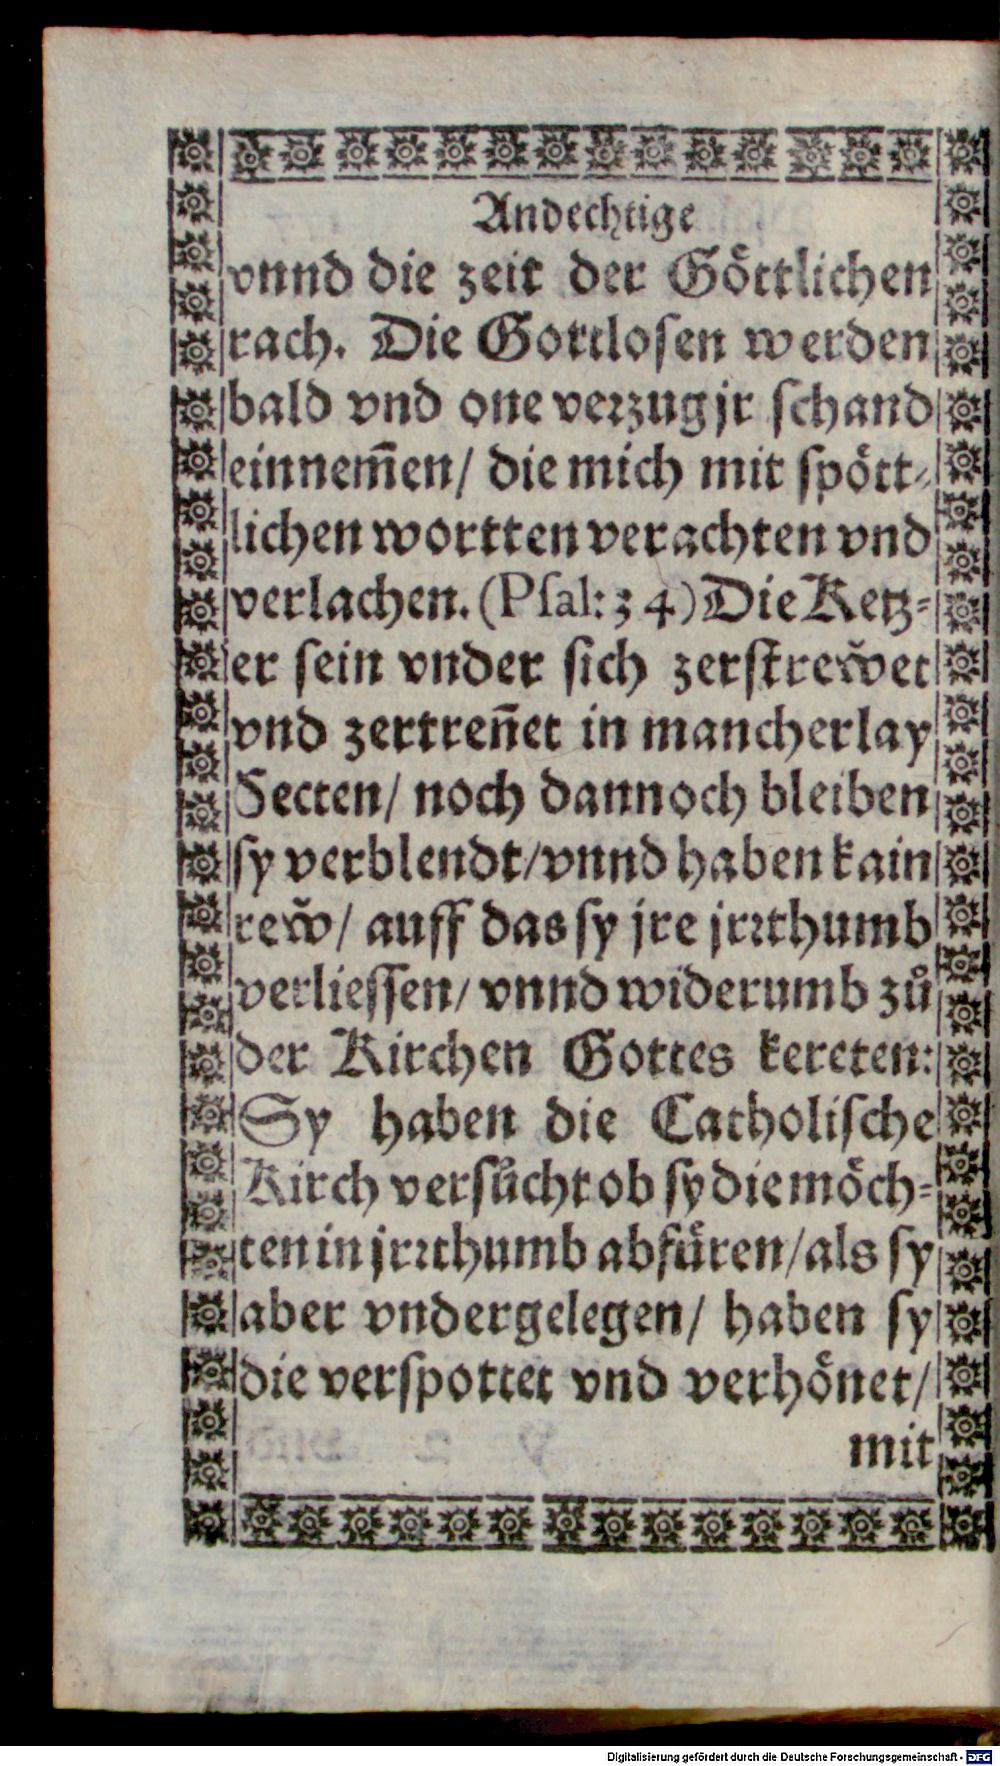 Andechtige
vnnd die zeit der Goͤttlichen
rach. Die Gottlosen werden
bald vnd one verzug jr schand
einnem̃en/ die mich mit spoͤtt⸗
lichen wortten verachten vnd
verlachen. (Psal: 34) Die Ketz⸗
er sein vnder sich zerstrew̆et
vnd zertreñet in mancherlay
Secten/ noch dannoch bleiben
sy verblendt/ vnnd haben kain
rew̆/ auff das sy jre jrꝛthumb
verliessen/ vnnd widerumb zuͦ
der Kirchen Gottes kereten:
Sy haben die Catholische
Kirch versuͦcht ob sy die moͤch⸗
ten in jrꝛthumb abfuͤren/ als sy
aber vndergelegen/ haben sy
die verspottet vnd verhoͤnet/
mit
Digitalisierung gefördert durch die Deutsche Forschungsgemeinschaft - DFG